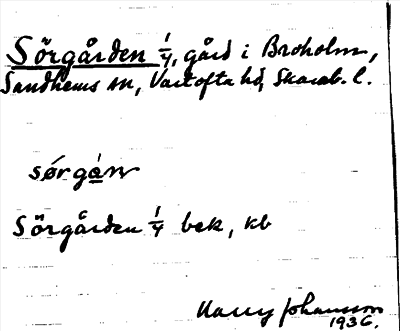 Sörgården 1/4, gård i Broholm,
Sandhems sn, Vartofta hd, Skarab. l.
sørgán
Sörgården 1/4 bek, kb
Harry Johansson
1936.